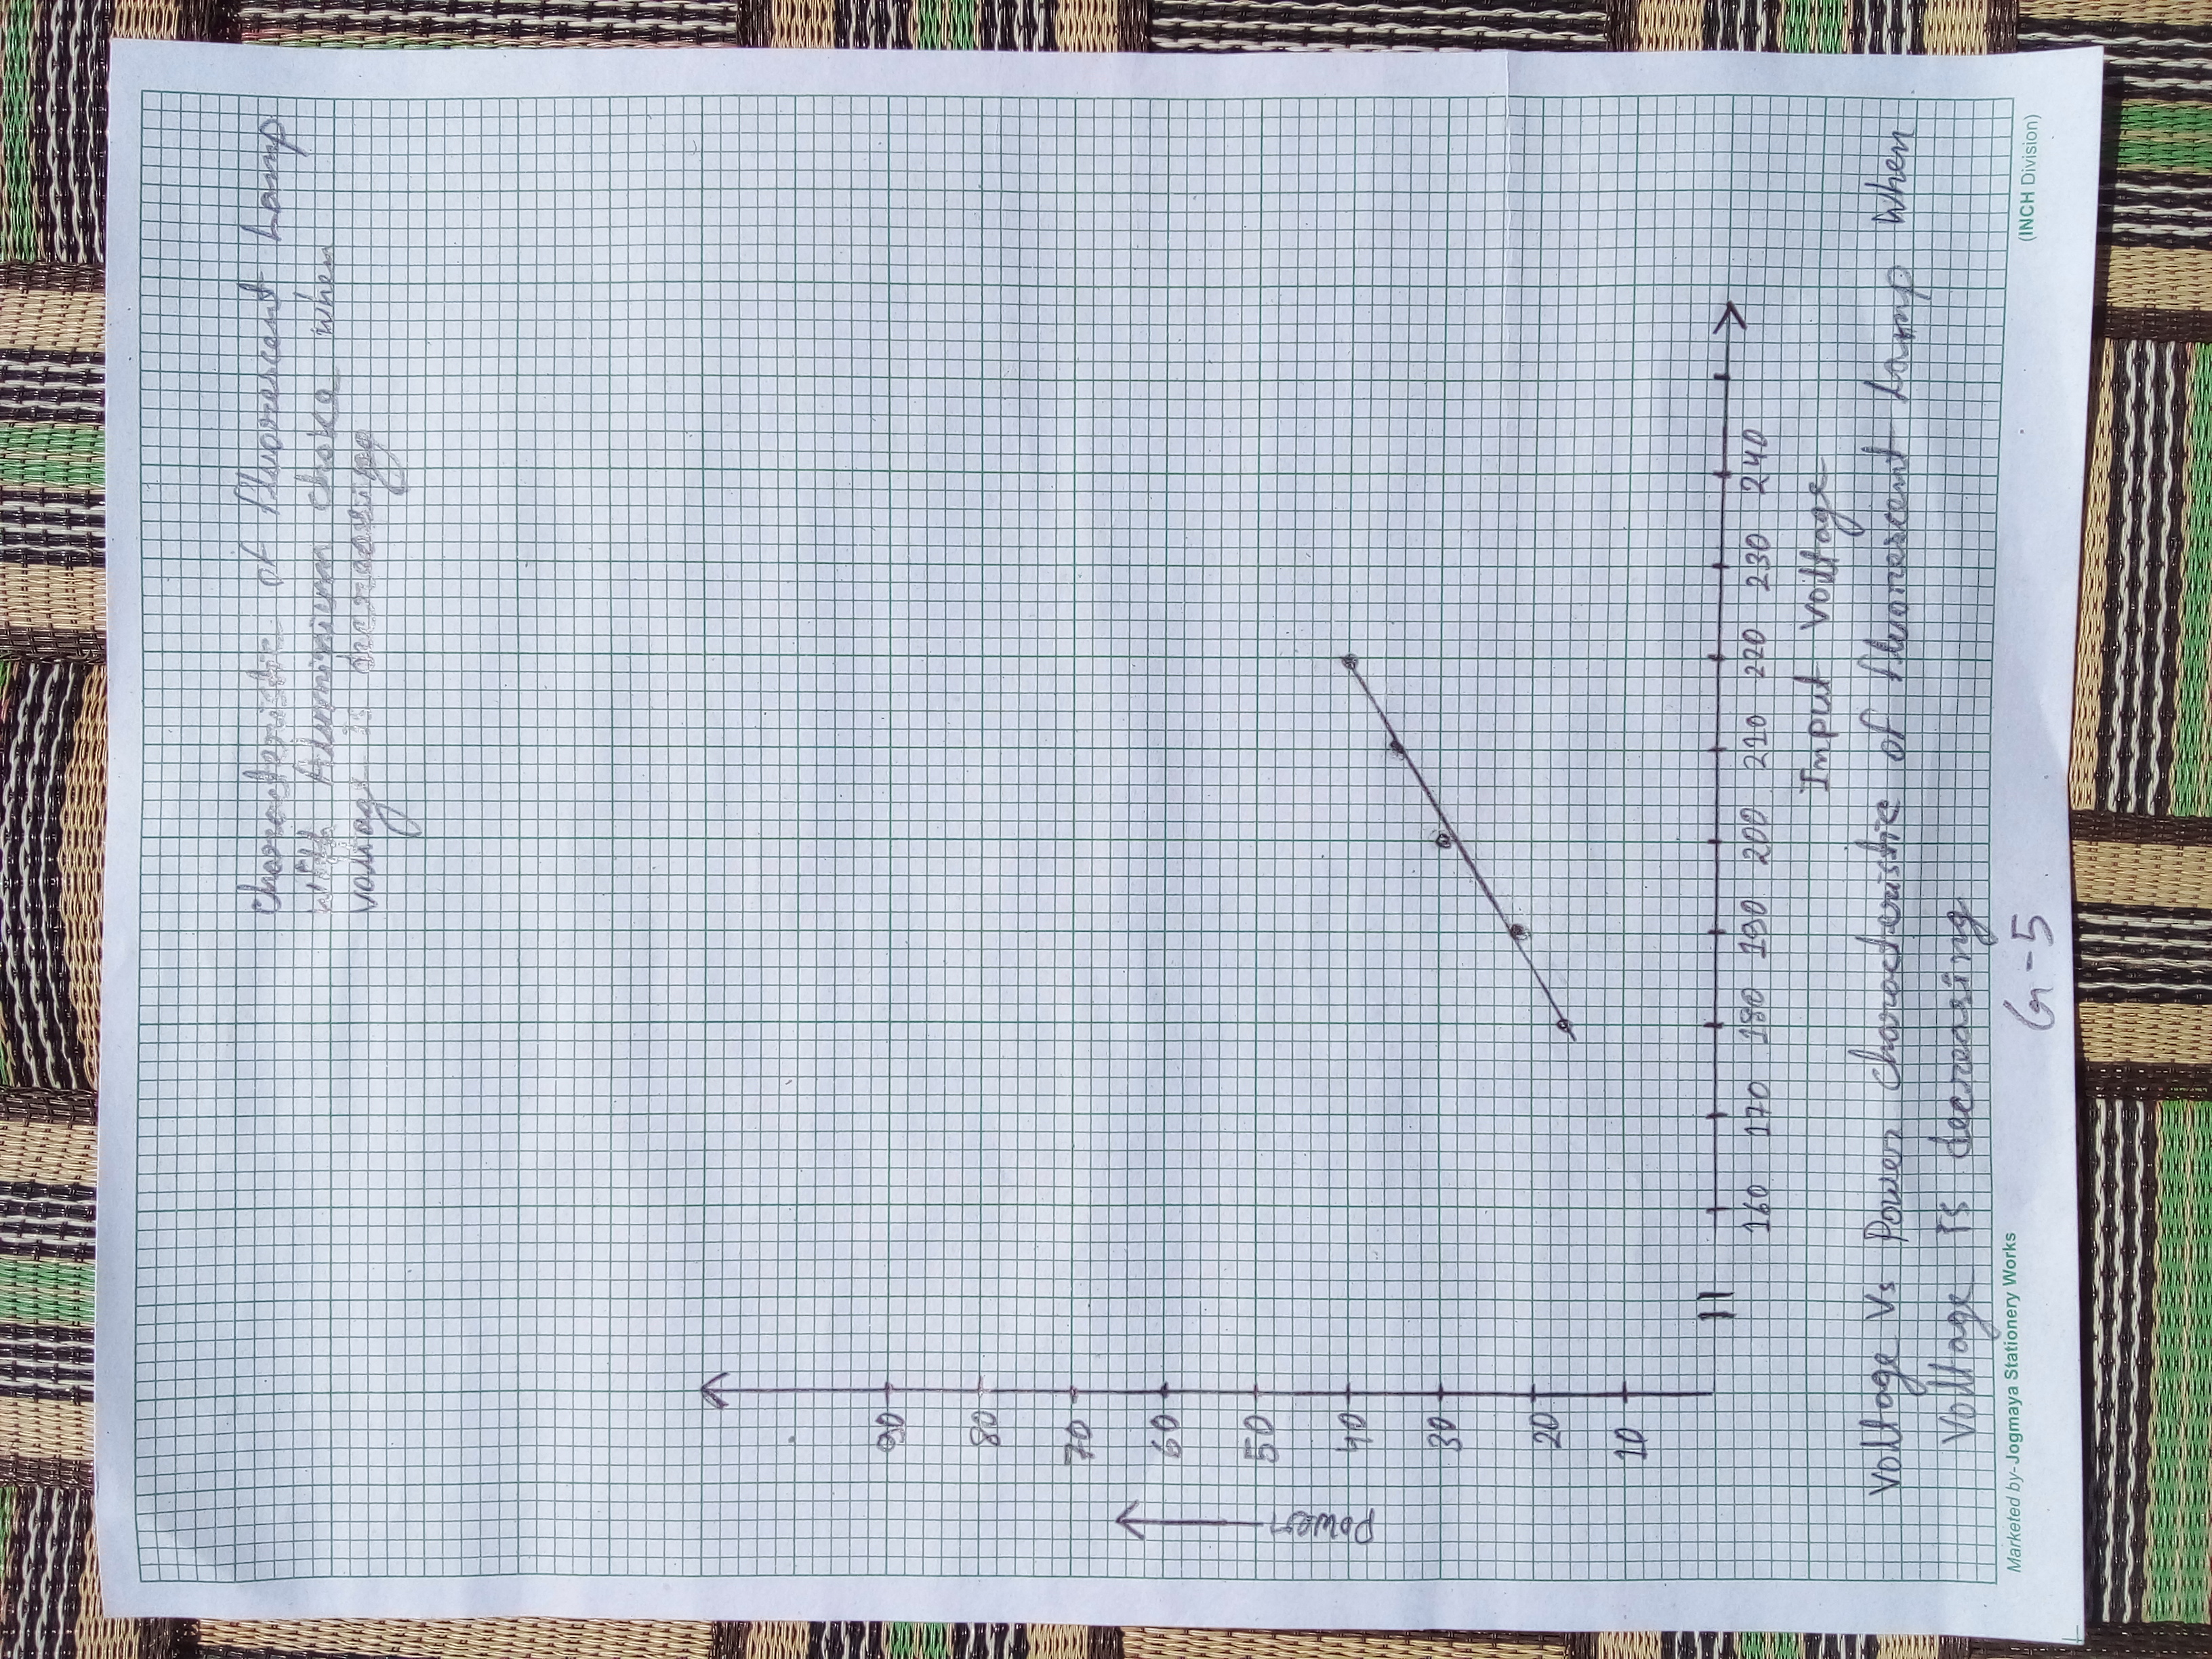 Characteristic of fluorescent Lamp
with Aluminium choke when
voltage is
90
80
70
60
50
40
30
20
10
Power
160 170 180 190 200 210 220 230 240
Input Voltage
Voltage Vs Power characteristic of fluorescent Lamp when
Voltage is decreasing
Marketed by- Jogmaya Stationery Works
(INCH Division)
G-5